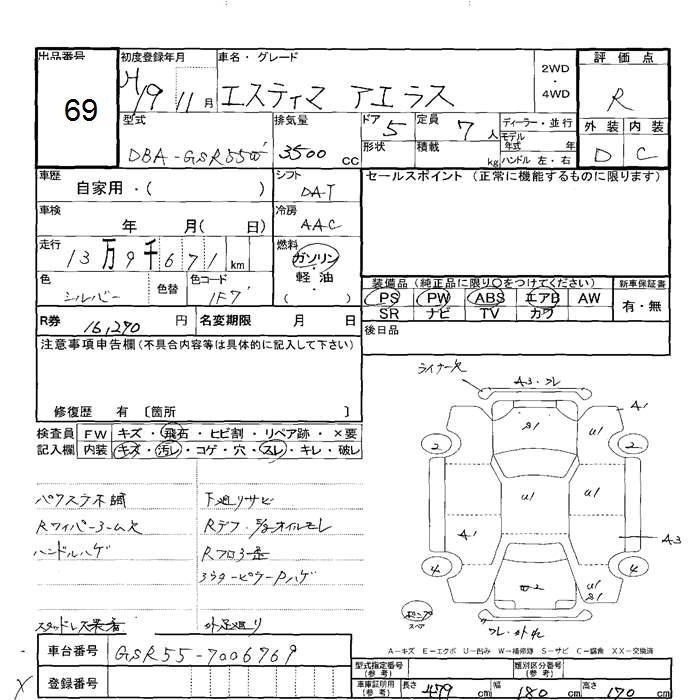 出品番号 初度登録年月 車名・グレード 2WD ・ 4WD 評価点
69 H19 11月 エスティマ アエラス R
型式 排気量 ドア 5 定員 7人 ディーラー・並行 外装 内装
DBA-GSR55W 3500cc 形状 積載 kg モデル年式 年 ハンドル 左・右 D C
車歴 自家用・( ) シフト DAT セールスポイント(正常に機能するものに限ります)
車検 年 月( 日) 冷房 AAC
走行 13万9千671km 燃料 ガソリン・軽油 ( )
色 シルバー 色替 色コード 1F7
装備品(純正品に限り○をつけてください) 新車保証書
PS PW ABS エアB AW 有・無
SR ナビ TV カワ
R券 16,270円 名変期限 月 日 後日品
注意事項申告欄(不具合内容等は具体的に記入して下さい)
修復歴 有〔箇所 〕
検査員記入欄 FW キズ・飛石・ヒビ割・リペア跡・×要
内装 キズ・汚レ・コゲ・穴・スレ・キレ・破レ
ライナー欠 A3・フレ
A1 S1 U1 U1
2 2
U1 U1
A1 A3
4 4
U1 S1
スペア
バクスラ不調 下廻りサビ
Rワイパーアーム欠
ハンドルハゲ
スタッドレス 外 足廻り
車台番号 GSR55-7006769
登録番号
A-キズ E-エクボ U-凹み W-補修跡 S-サビ C-腐食 XX-交換済
型式指定番号(参考) 類別区分番号(参考)
車庫証明用(参考) 長さ 479cm 幅 180cm 高さ 170cm